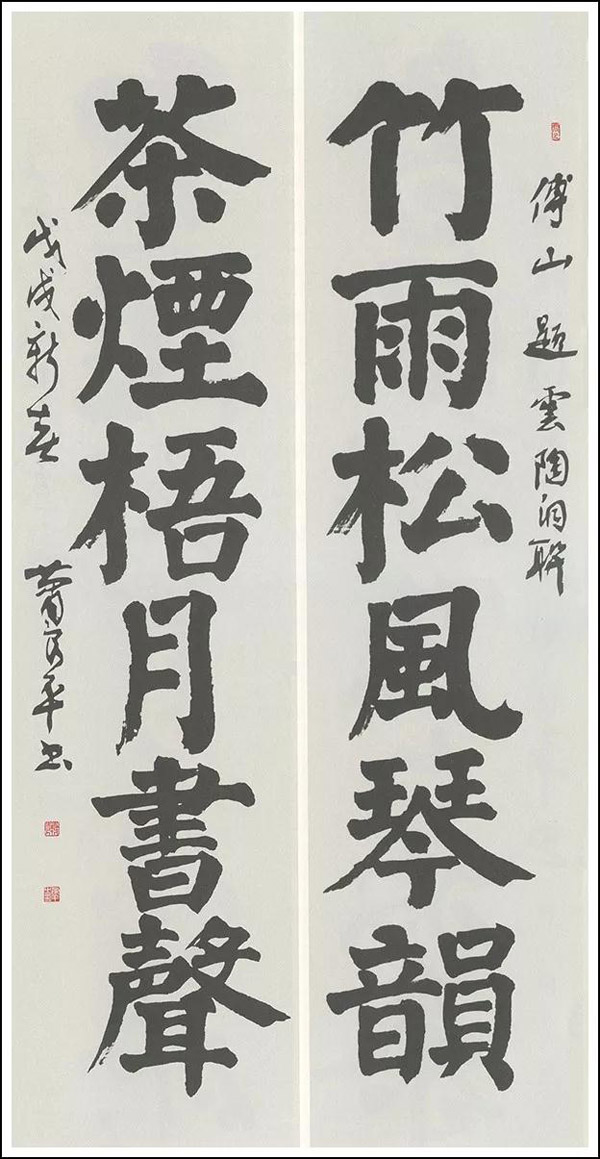 傅山題雲陶洞聯
竹雨松風琴韻
茶煙梧月書聲
戊戌新春